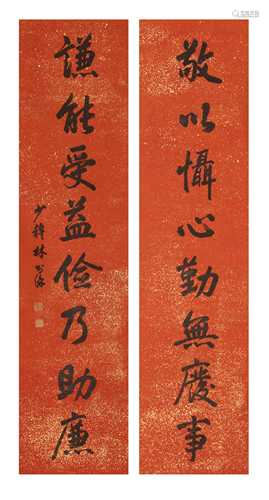 敬以懾心勤無廢事
謙能受益儉乃助廉
少穆林